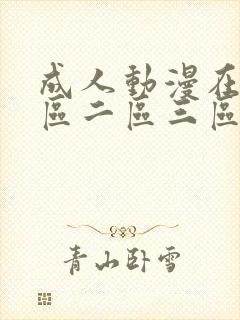 成人動漫在
區二區三區
青山卧雪